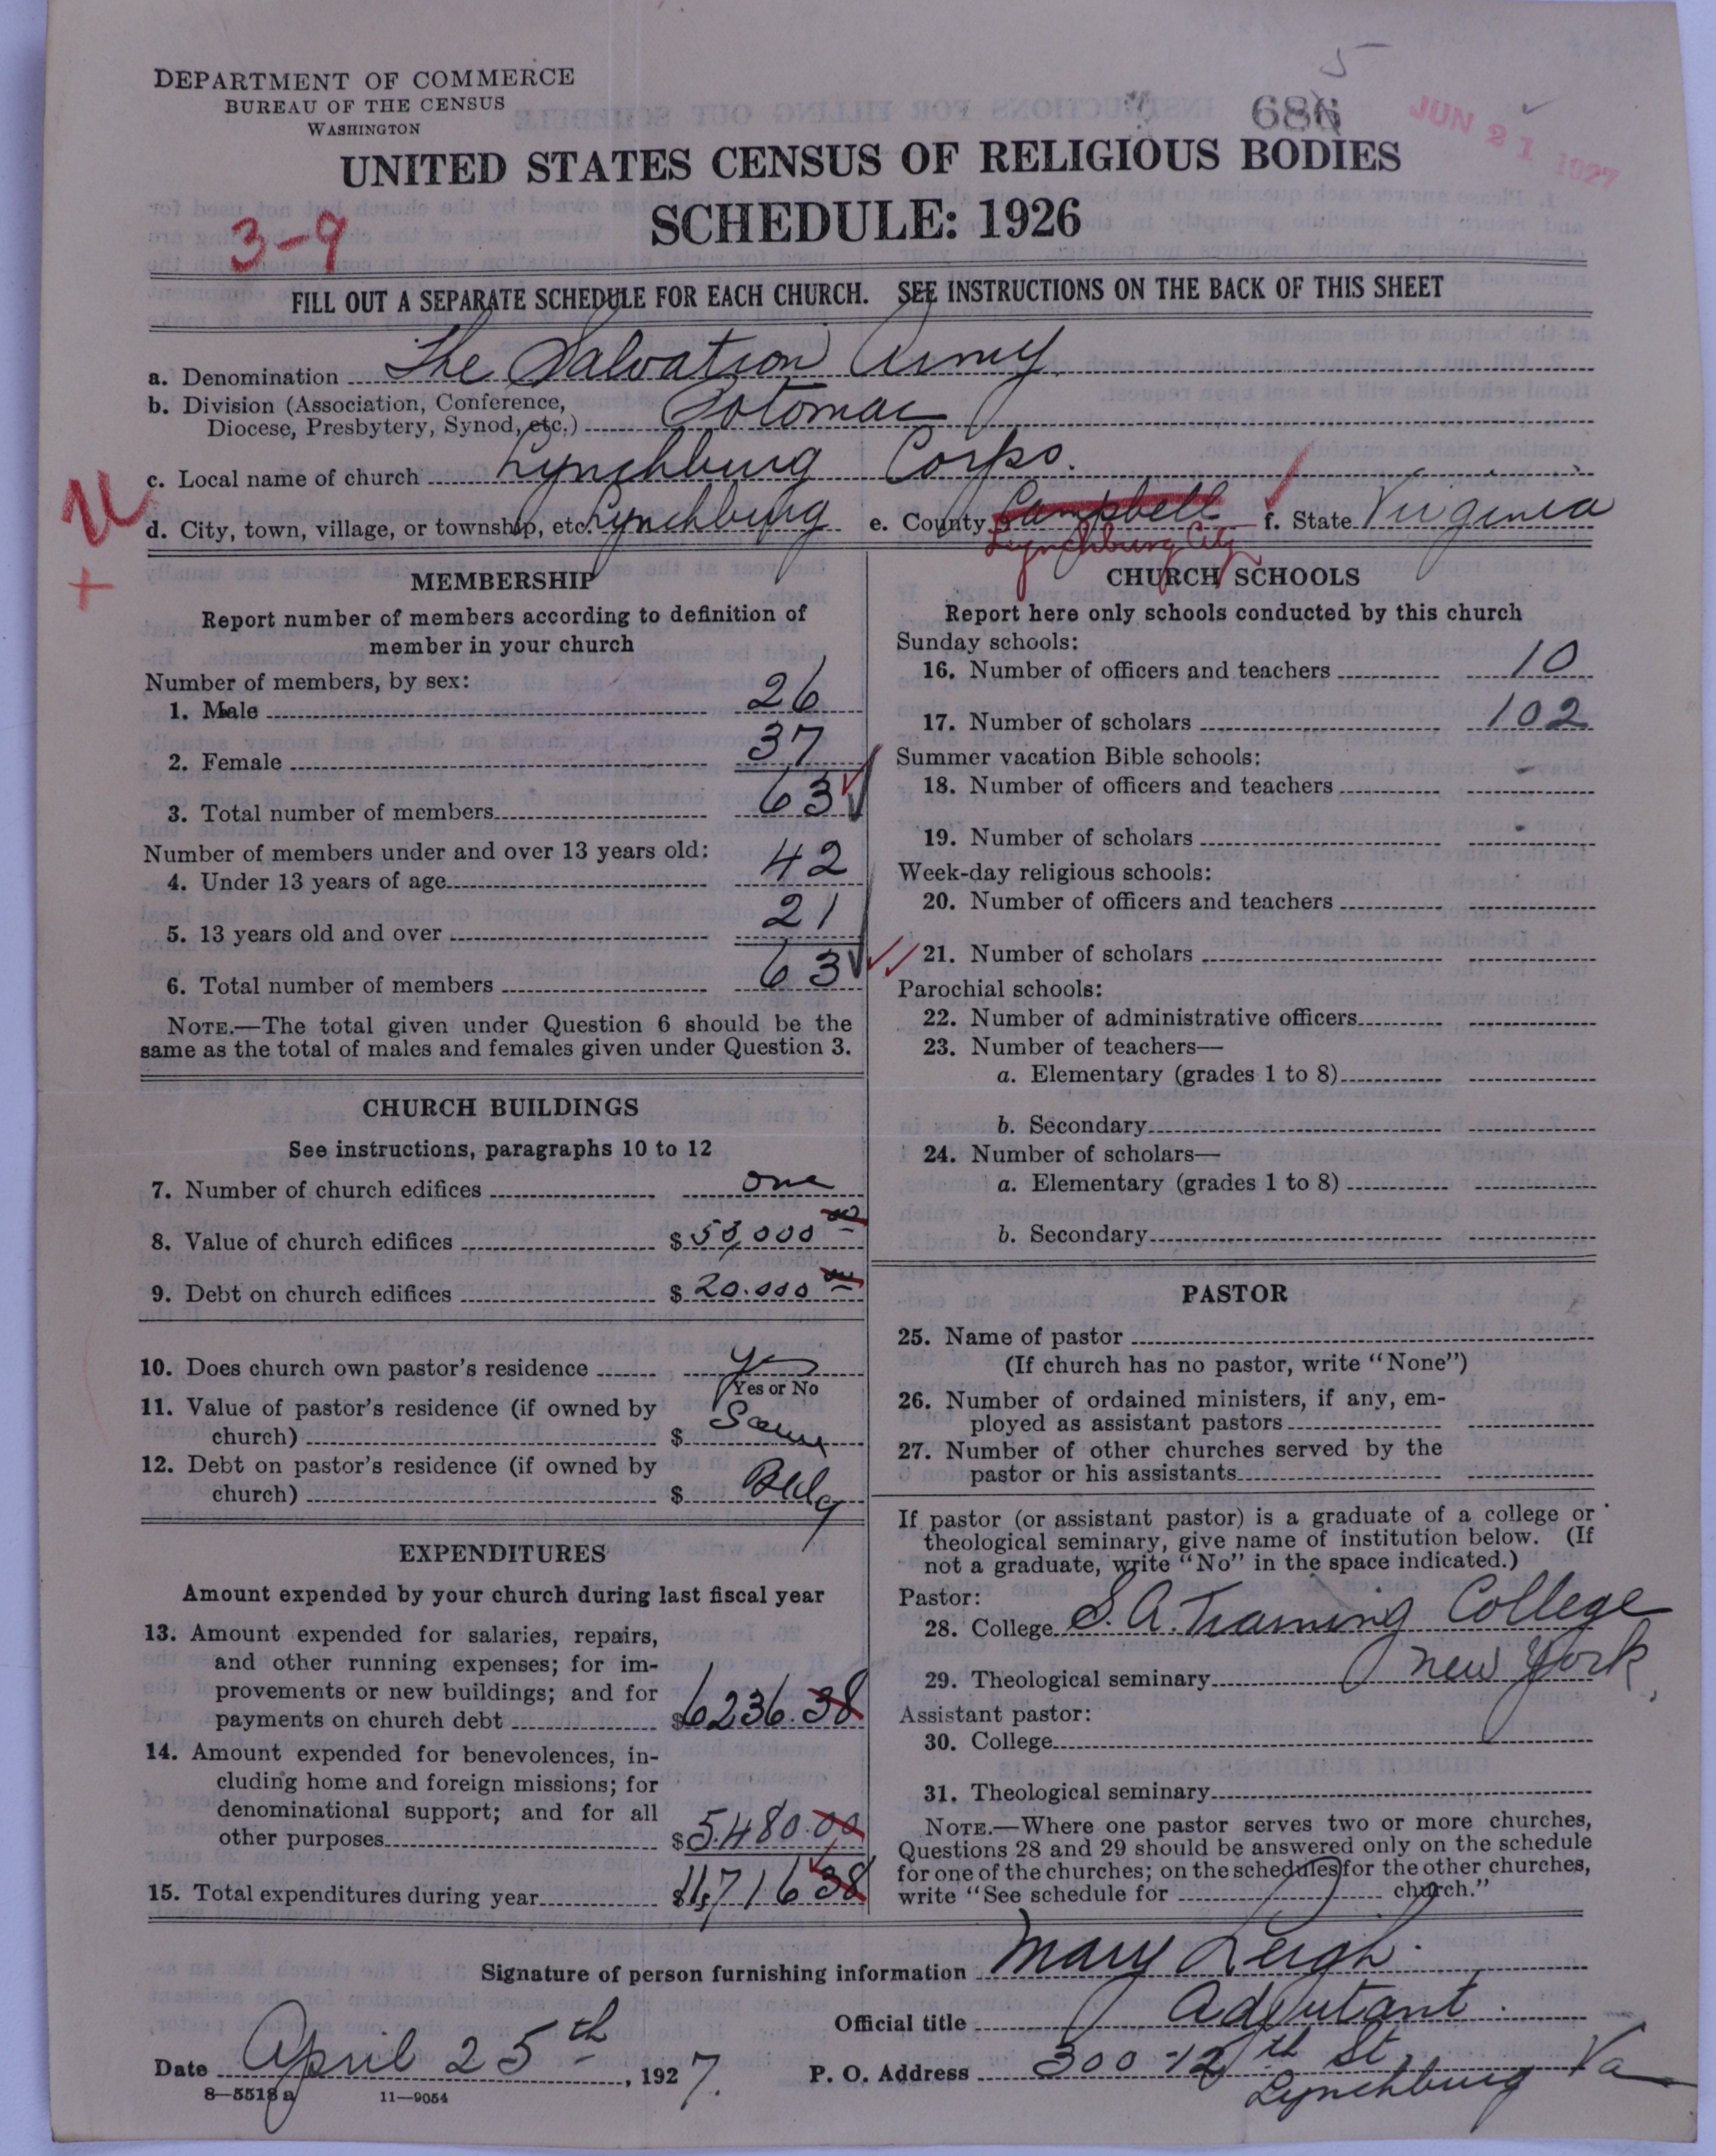 5
DEPARTMENT OF COMMERCE
BUREAU OF THE CENSUS
WASHINGTON
686
JUN 21 1927
UNITED STATES CENSUS OF RELIGIOUS BODIES
SCHEDULE: 1926
3-9
FILL OUT A SEPARATE SCHEDULE FOR EACH CHURCH. SEE INSTRUCTIONS ON THE BACK OF THIS SHEET
a. Denomination The Salvation Army
b. Division (Association, Conference,
Diocese, Presbytery, Synod, etc.) Potomac
c. Local name of church Lynchburg Corps.
d. City, town, village, or township, etc. Lynchburg e. County Campbell f. State Virginia
Lynchburg City
MEMBERSHIP
Report number of members according to definition of
member in your church
Number of members, by sex:
1. Male 26
2. Female 37
3. Total number of members 63
Number of members under and over 13 years old:
4. Under 13 years of age 42
5. 13 years old and over 21
6. Total number of members 63
NOTE.—The total given under Question 6 should be the
same as the total of males and females given under Question 3.
CHURCH BUILDINGS
See instructions, paragraphs 10 to 12
7. Number of church edifices one
8. Value of church edifices $ 50,000 00
9. Debt on church edifices $ 20.000 00
10. Does church own pastor's residence Yes
Yes or No
11. Value of pastor's residence (if owned by
church) $ Same
12. Debt on pastor's residence (if owned by
church) $ Bldg
EXPENDITURES
Amount expended by your church during last fiscal year
13. Amount expended for salaries, repairs,
and other running expenses; for im-
provements or new buildings; and for
payments on church debt $ 6236.38
14. Amount expended for benevolences, in-
cluding home and foreign missions; for
denominational support; and for all
other purposes $ 5480.00
15. Total expenditures during year $ 11,716 38
CHURCH SCHOOLS
Report here only schools conducted by this church
Sunday schools:
16. Number of officers and teachers 10
17. Number of scholars 102
Summer vacation Bible schools:
18. Number of officers and teachers -
19. Number of scholars -
Week-day religious schools:
20. Number of officers and teachers
21. Number of scholars
Parochial schools:
22. Number of administrative officers
23. Number of teachers—
a. Elementary (grades 1 to 8)
b. Secondary
24. Number of scholars—
a. Elementary (grades 1 to 8)
b. Secondary
PASTOR
25. Name of pastor
(If church has no pastor, write "None")
26. Number of ordained ministers, if any, em-
ployed as assistant pastors
27. Number of other churches served by the
pastor or his assistants
If pastor (or assistant pastor) is a graduate of a college or
theological seminary, give name of institution below. (If
not a graduate, write "No" in the space indicated.)
Pastor:
28. College S. A. Training College
29. Theological seminary New York.
Assistant pastor:
30. College
31. Theological seminary
NOTE.—Where one pastor serves two or more churches,
Questions 28 and 29 should be answered only on the schedule
for one of the churches; on the schedules for the other churches,
write "See schedule for church."
Signature of person furnishing information Mary Leigh.
Official title Adjutant.
Date April 25th, 1927. P. O. Address 300-12th St,
Lynchburg Va
8—5518 a 11—9054